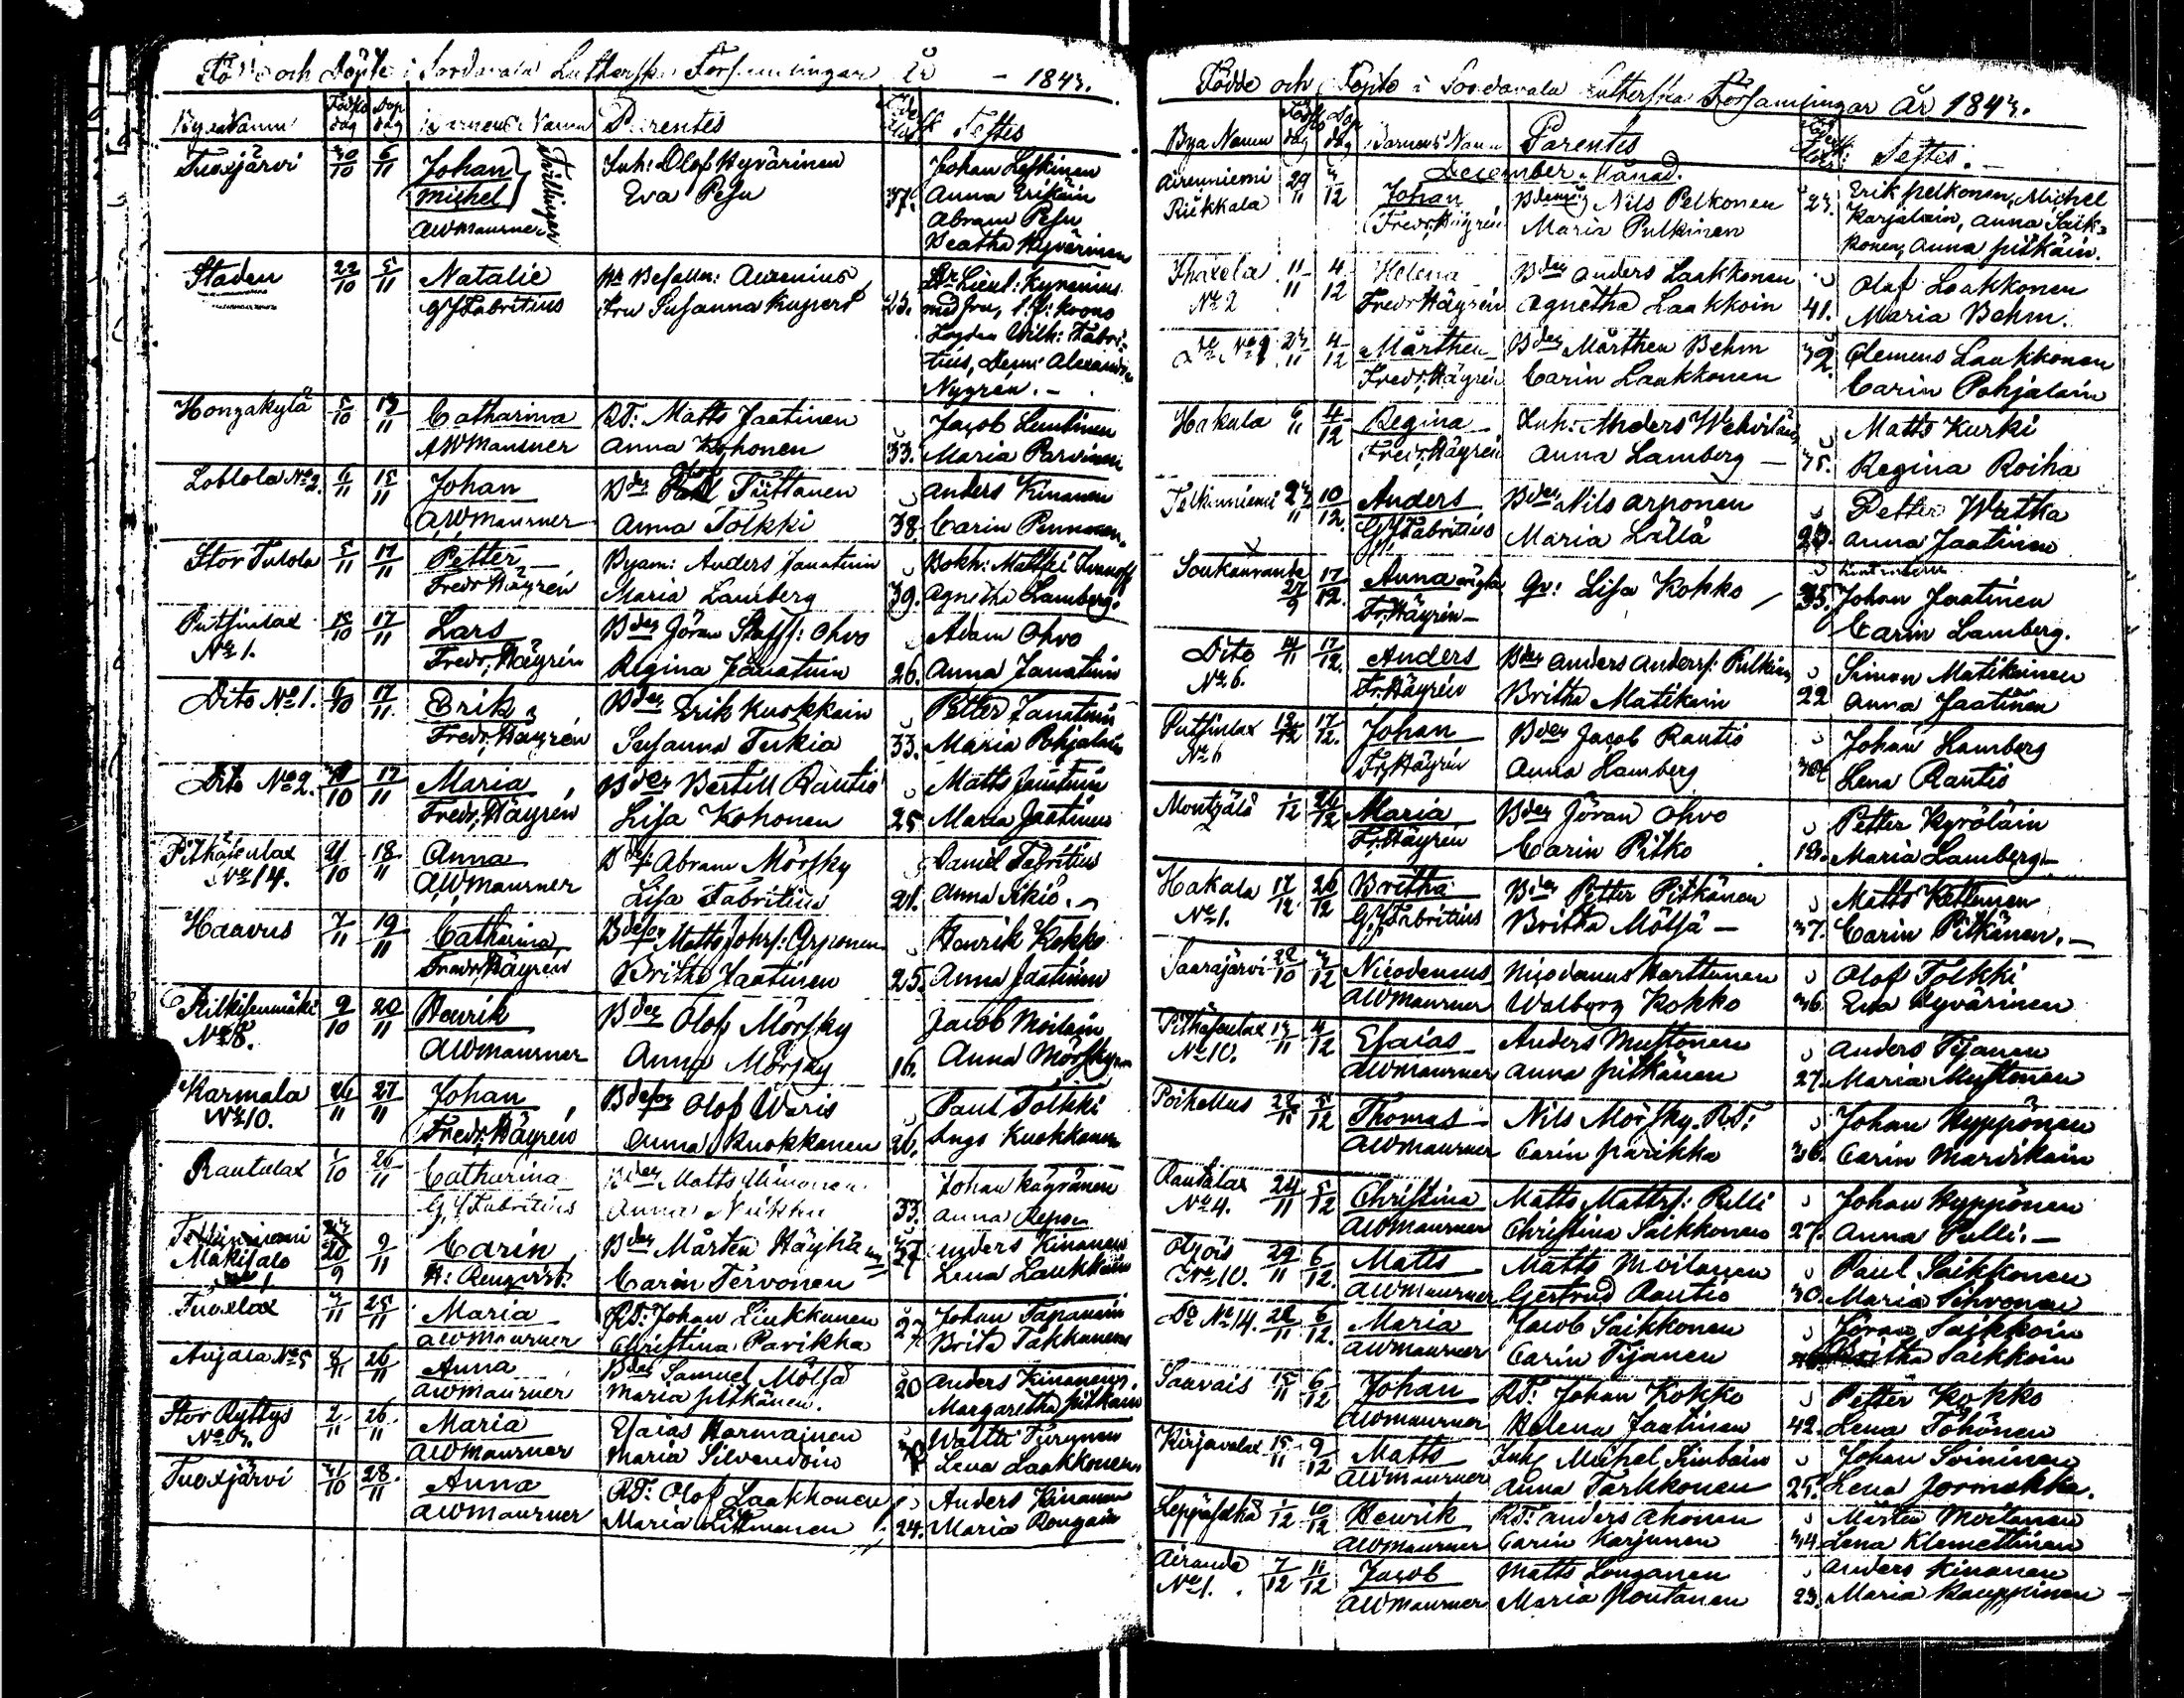 Födde och Döpte i Sordavala Lutherska Församlingar År - 1843.
Bya Namn Födsl. dag Dop dag Barnens Namn Parentes Testes
Tuoxjärvi 30/10 6/11 Johan Inh: Olof Hyvärinen Johan Leskinen
Michel Tvillingar Eva Pesu 37. Anna Erikäin
AWMaurner Abram Pesu
Beatha Hyvärinen
Staden 22/10 5/11 Natalie Hr Befallm: Aurenius
G J Fabritius Fru Susanna 25. med fru, Krono
Fogden Wilh: Fabri-
tius, Alexandra
Nygren. -
Hongakylä 5/10 13/11 Catharina RT: Matts Jaatinen Jacob Lemtinen
AWMaurner Anna Kohonen 33. Maria Parvinen
Loblola No 2. 6/11 15/11 Johan Bder Olof Tiittanen Anders Kinanen
AWMaurner Anna Tolkki 38. Carin Pennanen
Stor Tulola 5/11 17/11 Petter Byam: Anders Janatuin Bokh: Matthei Ivanoff
Fredr. Häyrén Maria Lamberg 39. Agnetha Lamberg.
Putsinlax 15/10 17/11 Lars Bder Jöran Staff: Ohvo Adam Ohvo
No 1. Fredr. Häyrén Regina Janatuin 26. Anna Janatuin
Dito No 1. 6/10 17/11 Erik Bder Erik Kuokkain Petter Janatuin
Fredr. Häyrén Susanna Turkia 33. Maria Pohjalain
Dito No 2. /10 17/11 Maria Bder Bertill Rautio Matts Janatuin
Fredr. Häyrén Lisa Kohonen 25 Maria Jaatinen
Pitkäsenlax 21/10 18/11 Anna Abram Mörsky Daniel Fabritius
No 14. AWMaurner Lisa Fabritius 21. Anna Sikiö.
Haavus 7/11 19/11 Catharina Matts Johs: Arponen Henrik Kokko
Fredr. Häyrén Britha Jaatinen 25. Anna Jaatinen
Kilkisenmäki 9/10 20/11 Henrik Bder Olof Mörsky Jacob Moilain
No 8. AWMaurner Anna Mörsky 16. Anna Mörsky
Karmala 26/11 27/11 Johan Olof Waris Paul Tolkki
No 10. Fredr. Häyrén Anna Kuokkanen 26. Inga Kuokkanen
Rautalax 1/10 26/11 Catharina Bder Matts Mimonen Johan Käyränen
G. J Fabritius Anna 33. Anna Repo
Mäkisalo 20/9 9/11 Carin Bder Mårten Häyhä 37 Anders Kinanen
H: Renqvist. Carin Tervonen Lena Laukkain
Tuoxlax 3/11 25/11 Maria RT: Johan Liukkunen 27 Johan Tapanain
AWMaurner Christina Parikka Brita Takkunen
Anjala No 5 8/11 26/11 Anna Bder Samuel Mölsä 20 Anders Kinanen
AWMaurner Maria Pitkänen. Margaretha Pitkäin
Stor Ryttys 2/11 26/11 Maria Esaias Harmainen Waltti Turunen
No 3. AWMaurner Maria Silvendoin Lena Laakkonen
Tuoxjärvi 31/10 28/11 Anna RT: Olof Laakkonen Anders Kinanen
AWMaurner Maria Littmanen 24. Maria Rongain
Födde och Döpte i Sordavala Lutherska Församlingar År 1843.
Bya Namn Födsl. dag Dop dag Barnens Namn Parentes Testes. -
December Månad.
Airenniemi 29/11 3/12 Johan Nils Pelkonen 23. Erik Pelkonen, Michel
Riekkala Fredr. Häyrén Maria Pulkinen Karjalain, Anna Saik-
konen, Anna Pitkäin.
Ihaxela 11/11 4/12 Helena Bder Anders Laakkonen Olof Laakkonen
No 2 Fredr. Häyrén Agnetha Laakkoin 41. Maria Behm.
No 9 23/11 4/12 Mårthen Bder Mårthen Behm 32. Clemens Laukkonen
Fredr. Häyrén Carin Laakkonen Carin Pohjalain
Hakala 6/11 4/12 Regina Inh: Anders Wehviläin Matts Kurki
Fredr. Häyrén Anna Lamberg 35. Regina Roiha
Telkinniemi 23/11 10/12. Anders Bder Nils Arponen Petter Watka
G J Fabritius Maria Lällä Anna Jaatinen
Soukanranta 27/9 17/12. Anna oägta Qv: Lisa Kokko 35. Johan Jaatinen
Fr. Häyrén Carin Lamberg.
Dito 14/11 17/12. Anders Bder Anders Anderss: Pulkin Simon Matikainen
No 6. Fr. Häyrén Britha Matikain 22 Anna Jaatinen
Putsinlax 13/12 17/12. Johan Bder Jacob Rautio Johan Lamberg
No 6 Fr. Häyrén Anna Lamberg Lena Rautio
Montzälä 1/12 26/12 Maria Bder Jöran Ohvo Petter Kyröläin
Fr. Häyrén Carin Pitko 19. Maria Lamberg -
Hakala 17/12. 26/12 Britha Bder Petter Pitkänen Matts Kettunen
No 1. G J Fabritius Britha Mölsä - 37. Carin Pitkänen. -
Saarajärvi 22/10 3/12 Nicodemus Nicodemus Karttunen Olof Tolkki
AWMaurner Walborg Kokko 36. Eva Hyvärinen
Pitkäsenlax 13/11 4/12 Esaias Anders Mustonen Anders Tijanen
No 10. AWMaurner Anna Pitkänen 27. Maria Mustonen
Poikellus 22/11 5/12 Thomas Nils Mörsky RT: Johan Hyppönen
AWMaurner Carin Parikka 36. Carin Marvikain
Rautalax 24/11 5/12 Christina Matts Mattss: Pulli Johan Hyppönen
No 4. AWMaurner Christina Saikkonen 27. Anna Pulli. -
Otzois 29/11 6/12. Matts Matts Moilanen Paul Saikkonen
No 10. AWMaurner Gertrud Rautio 30. Maria Sihvonen
Do No 14. 22/11 6/12. Maria Jacob Saikkonen Jöran Saikkoin
AWMaurner Carin Tijanen Britha Saikkoin
Saavais 15/11 6/12 Johan RT: Johan Kokko Petter Kokko
AWMaurner Helena Jaatinen 42. Lena Töhönen
Kirjavalax 15/11 9/12 Matts Inh. Michel Simbain Johan Soininen
AWMaurner Anna Tarkkonen 25. Lena Jormakka.
Leppäselkä 1/12 10/12 Henrik RT: Anders Ahonen Mårten Moilanen
AWMaurner Carin Karjunen 34. Lena Klemettinen
Airanne 7/12 11/12 Jacob Matts Longanen Anders Kinanen
No 1. AWMaurner Maria Pontanen 23. Maria Kauppinen